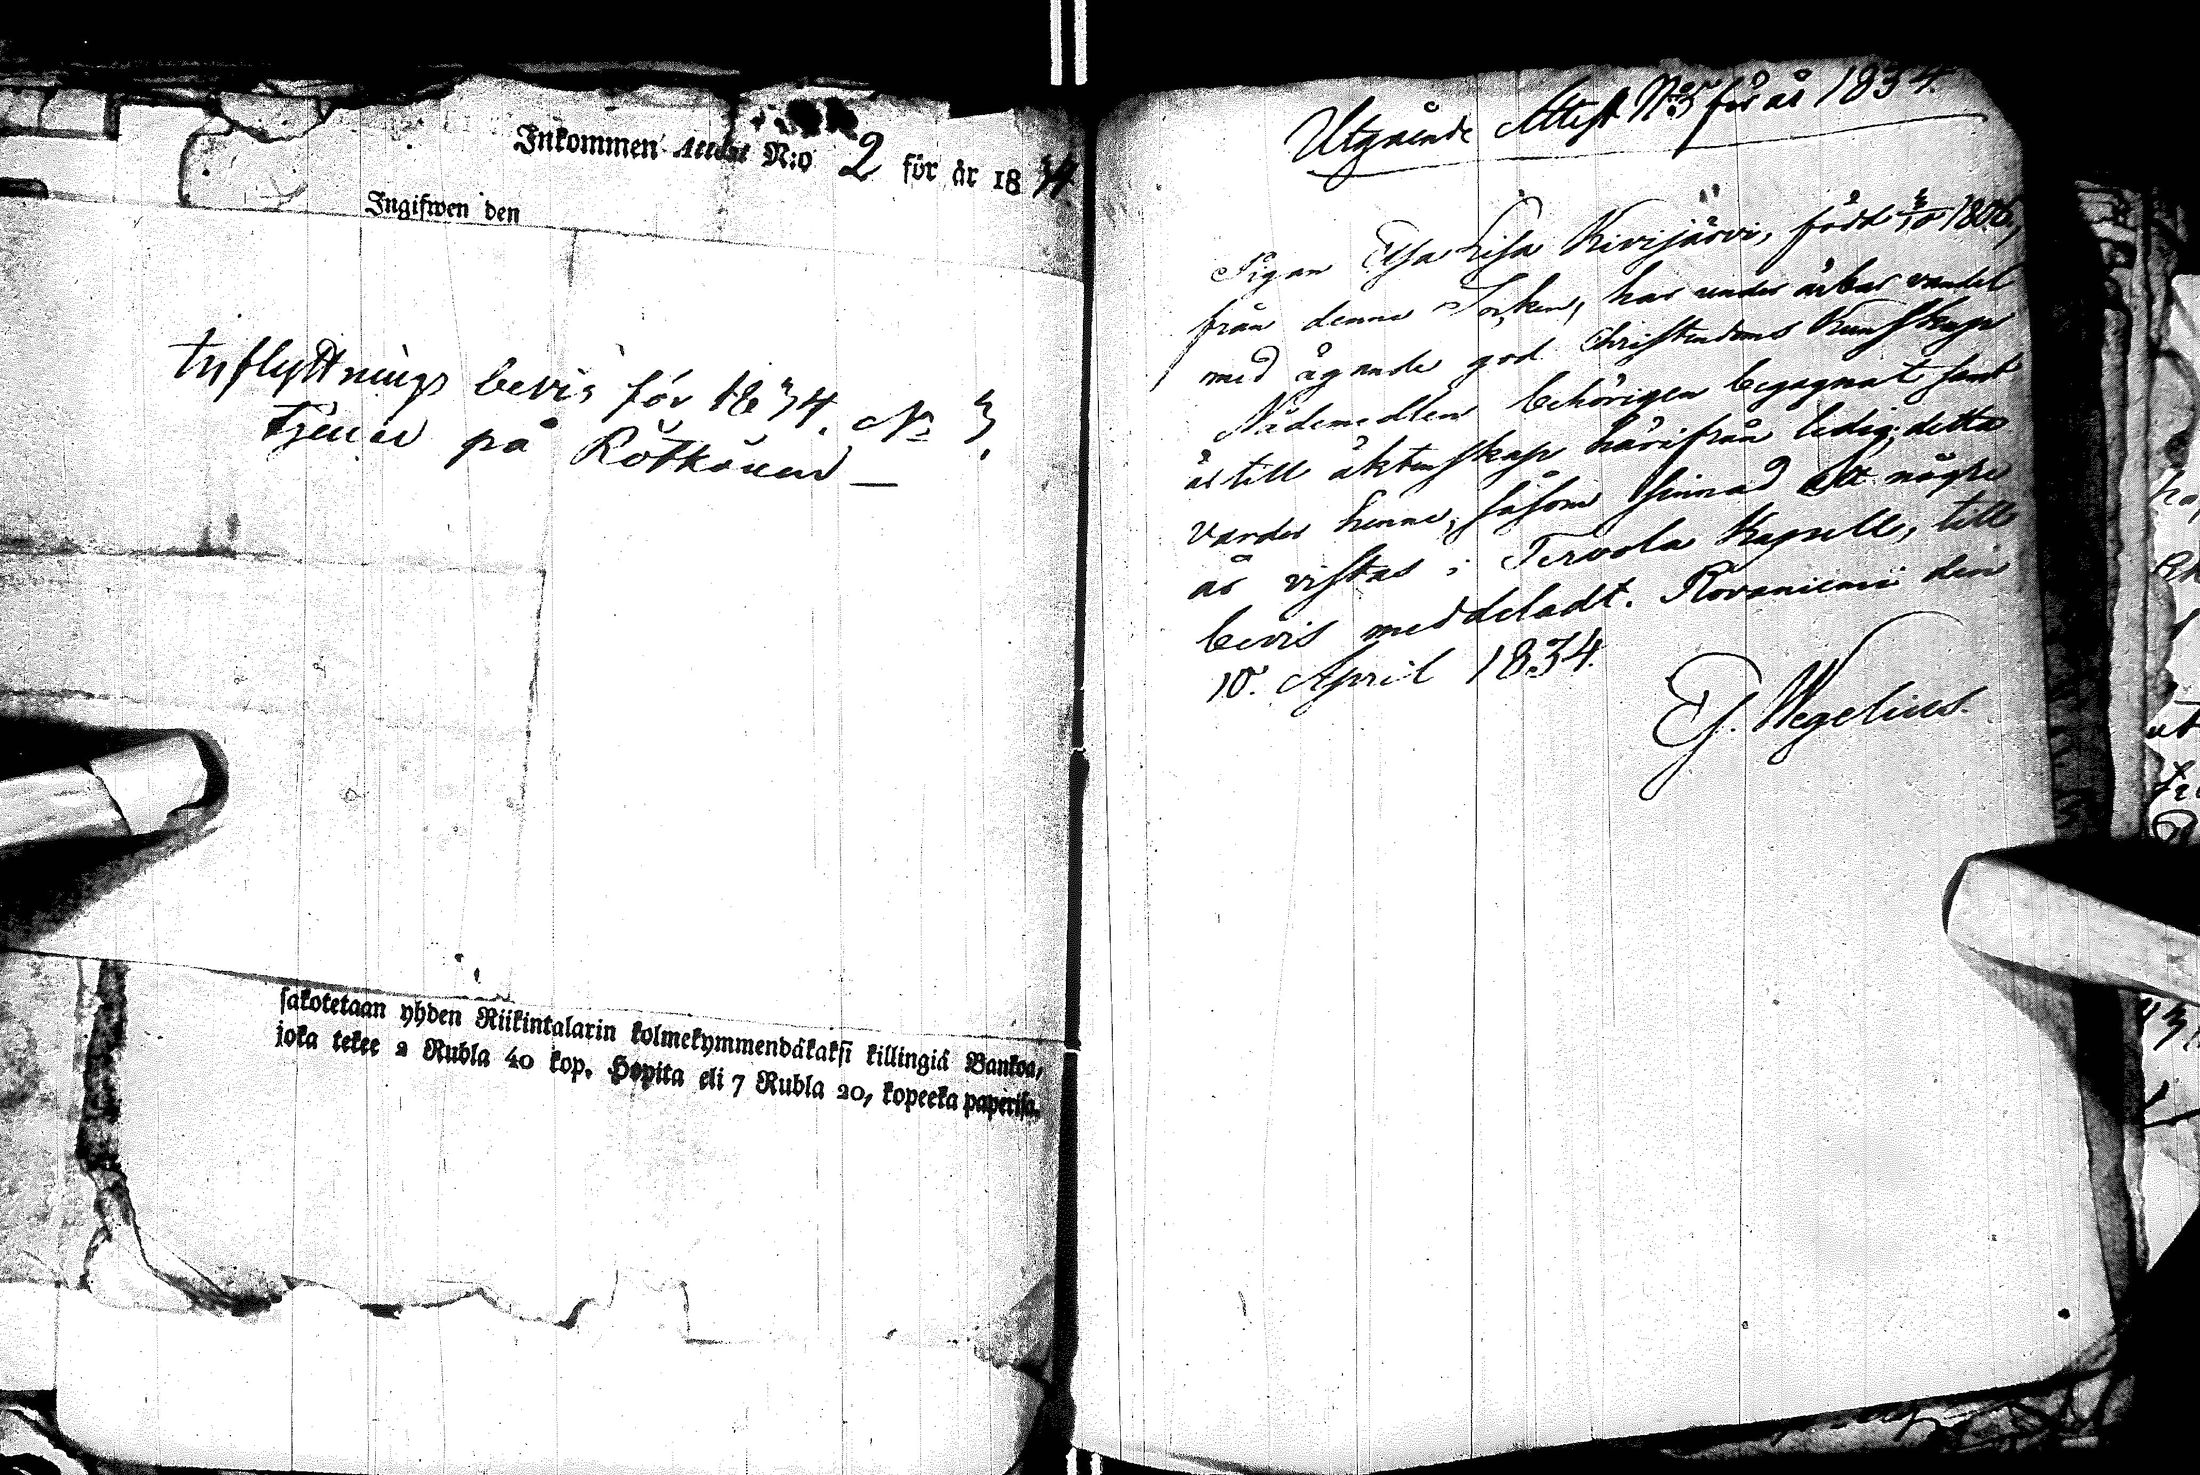 Inkommen Attest N:o 2 för år 1834
Ingifwen den
Inflyttnings bevis för 1834. No 3.
Tjenar på Rötkönen —
sakotetaan yhden Riikintalarin kolmekymmendäkaksi killingiä Bankoa,
joka tekee 2 Rubla 40 kop. Hopita eli 7 Rubla 20, kopeeka paperisa.
Utgående Attest No 5 för år 1834.
Pigan Elsa Lisa Kivijärvi, född 1806,
från denna Socken, har under ärbar vandel
med ägande god Christendoms Kunskap
Nådemedlen behörigen begagnat samt
är till äktenskap härifrån ledig; detta
varder henne, såsom sinnad att någre
år vistas i Tervola Kapell, till
bevis meddeladt. Rovaniemi den
10. April 1834.
Ej. Wegelius.